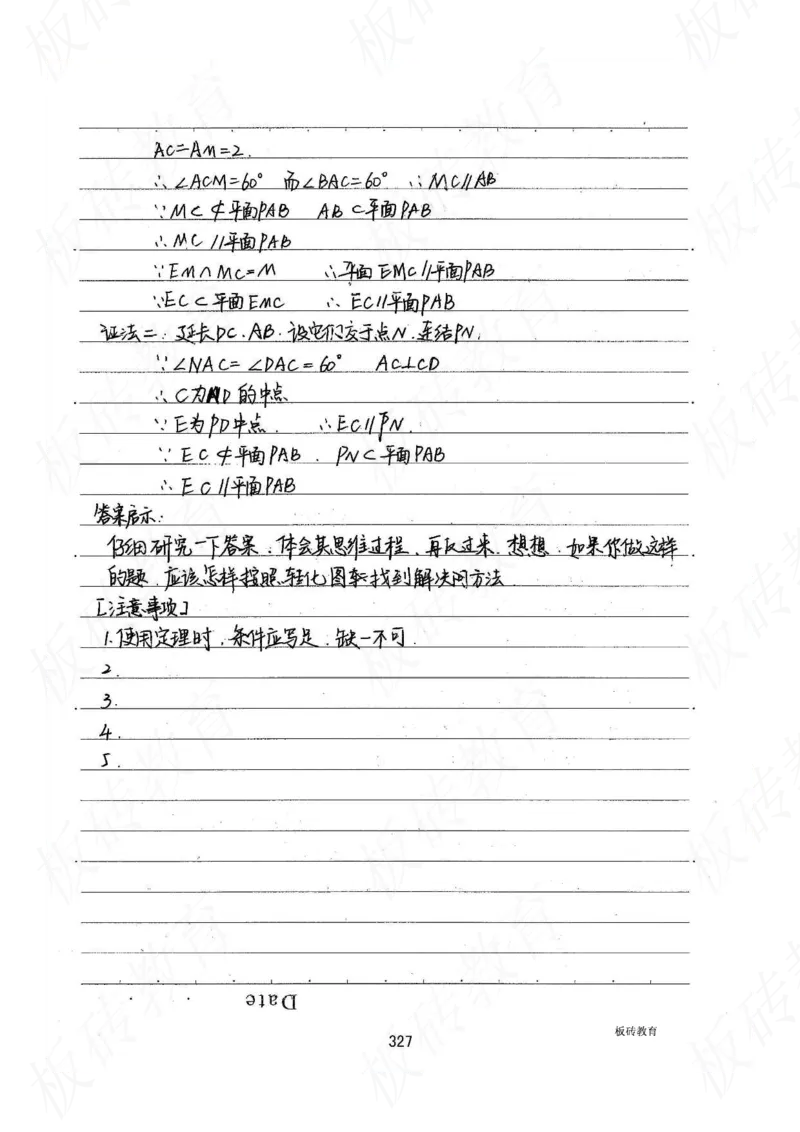 AC=AM=2.
∴∠ACM=60° 而∠BAC=60° ∴MC∥AB
∵MC⊄平面PAB AB⊂平面PAB
∴MC∥平面PAB
∵EM∩MC=M ∴平面EMC∥平面PAB
∵EC⊂平面EMC ∴EC∥平面PAB
证法二：延长DC、AB，设它们交于点N，连结PN，
∵∠NAC=∠DAC=60° AC⊥CD
∴C为ND的中点
∵E为PD中点 ∴EC∥PN.
∵EC⊄平面PAB，PN⊂平面PAB
∴EC∥平面PAB
答案启示：
仔细研究一下答案，体会其思维过程，再反过来，想想，如果你做这样
的题，应该怎样按照转化图来找到解决问方法
[注意事项]
1.使用定理时，条件应写足，缺一不可.
2.
3.
4.
5.
Date
327
板砖教育